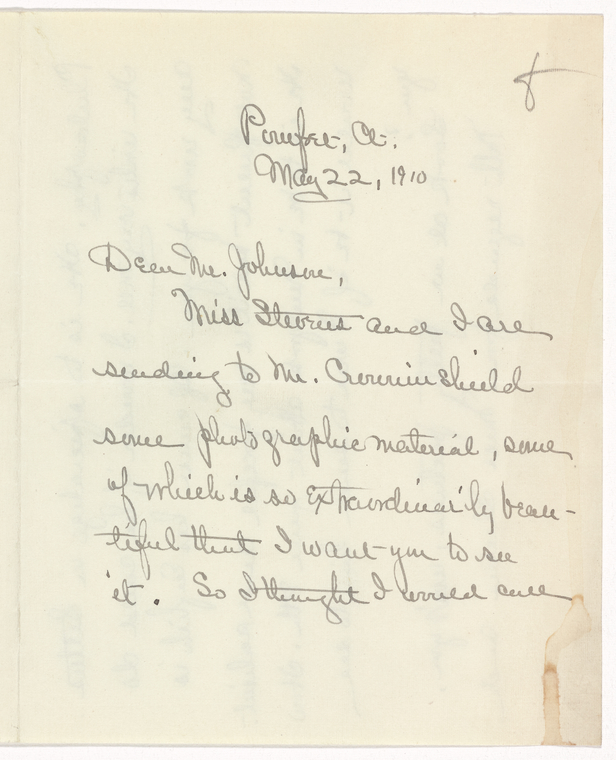 Pomfret, Ct.
May 22, 1910
Dear Mr. Johnson,
Miss Stevens and I are
sending to Mr. Crowninshield
some photographic material, some
of which is so extraordinarily beau-
tiful that I want you to see
it. So I thought I would call